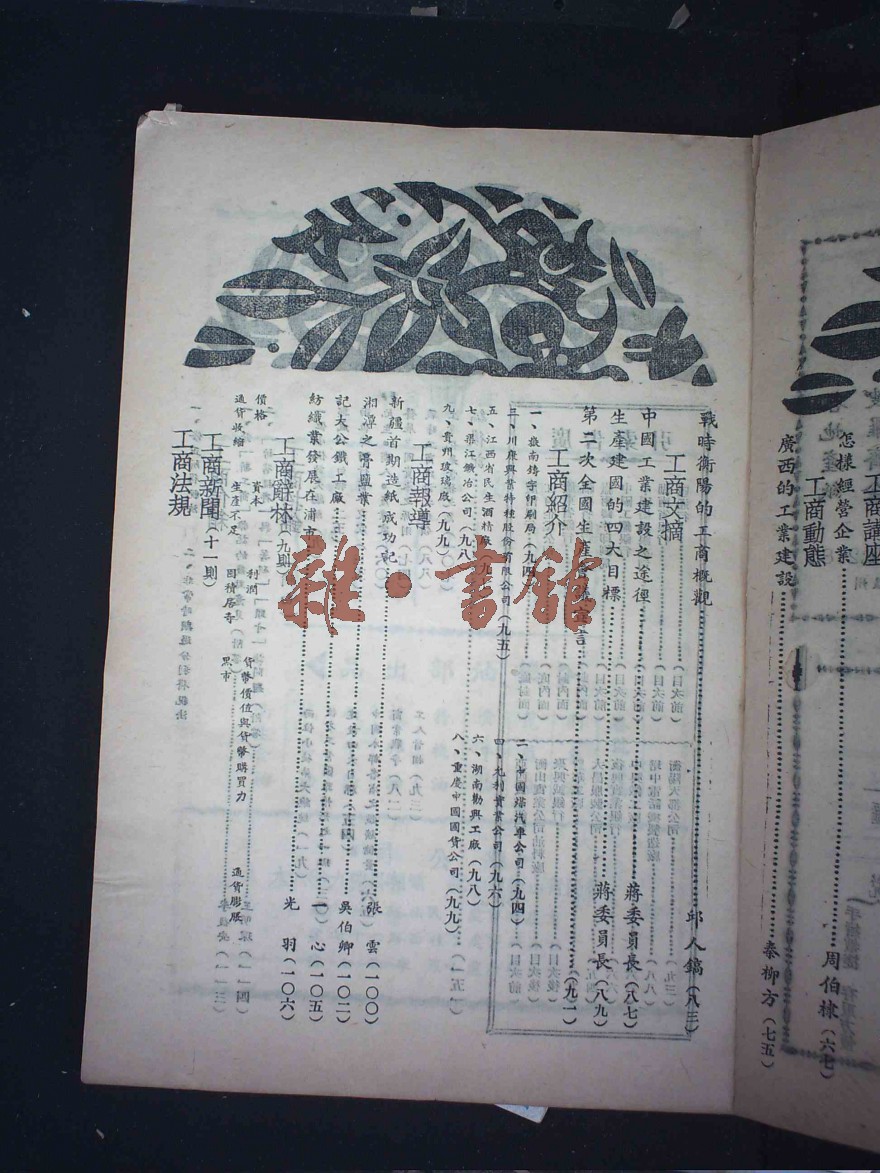 工商講座
怎樣經營企業 周伯棣(六七)
工商動態
廣西的工業建設 秦柳方(七五)
戰時衡陽的工商概觀 邱人鎬(八三)
工商文摘
中國工業建設之途徑 蔣委員長(八七)
生產建國的四大目標 蔣委員長(八九)
第二次全國生產會議宣言 (九一)
工商紹介
一、嶽南鑄字印刷局(九四) 二、中國煤汽車公司(九四)
三、川康興業特種股份有限公司(九五) 四、九利實業公司(九六)
五、江西省民生酒精廠(九七) 六、湖南勸興工廠(九八)
七、渠江鑛冶公司(九八) 八、重慶中國國貨公司(九九)
九、貴州玻璃廠(九九)
工商報導
新疆首期造紙成功記
湘潭之膏鹽業 張雲(一〇〇)
記大公鐵工廠 吳伯卿(一〇二)
紡織業發展在浦市 一心(一〇五)
光羽(一〇六)
工商辭林(九則)
價格 資本 利潤 貨幣價值與貨幣購買力 通貨膨脹
通貨收縮 生產不足 囤積居奇 黑市
工商新聞(十一則)
工商法規
雜·書館